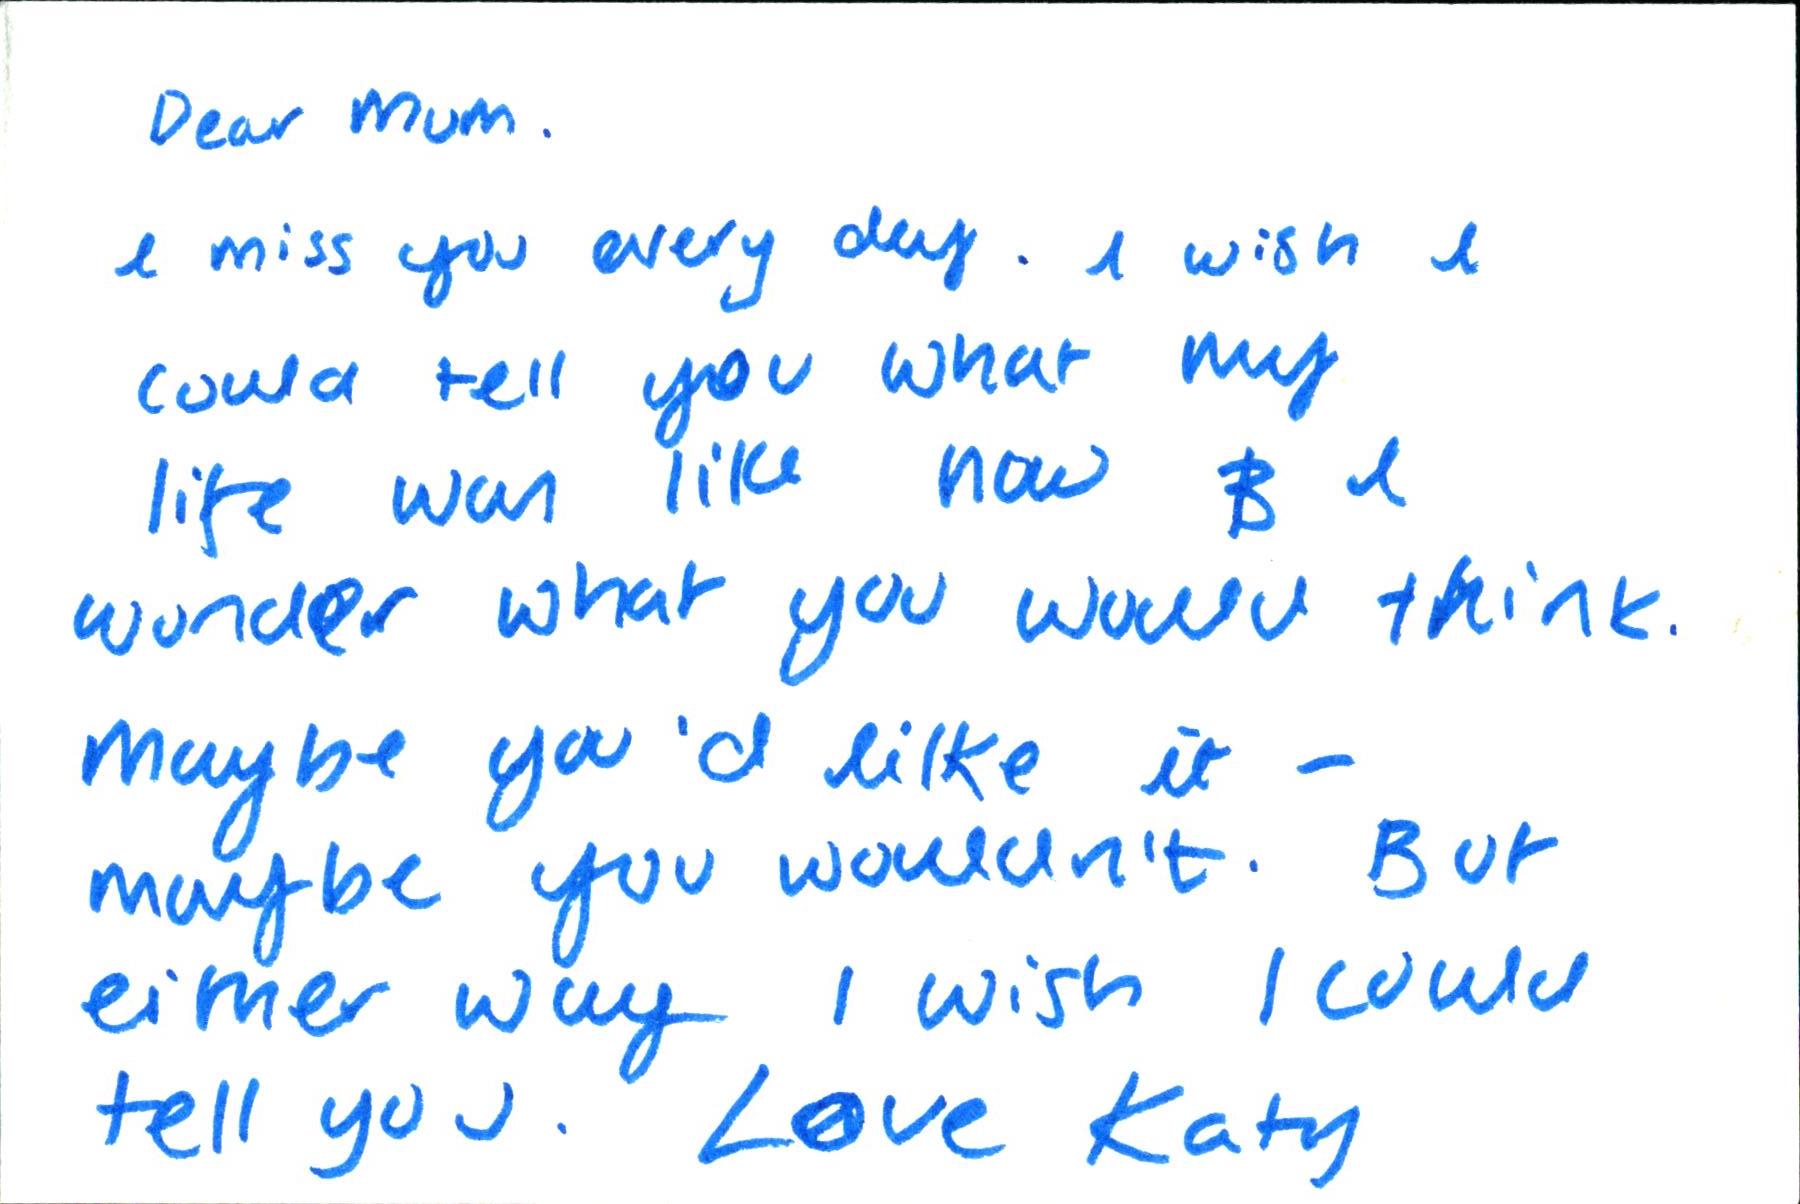 Dear Mum.
I miss you every day. I wish I
could tell you what my
life was like now & I
wonder what you would think.
Maybe you'd like it -
maybe you wouldn't. But
either way I wish I could
tell you. Love Katy